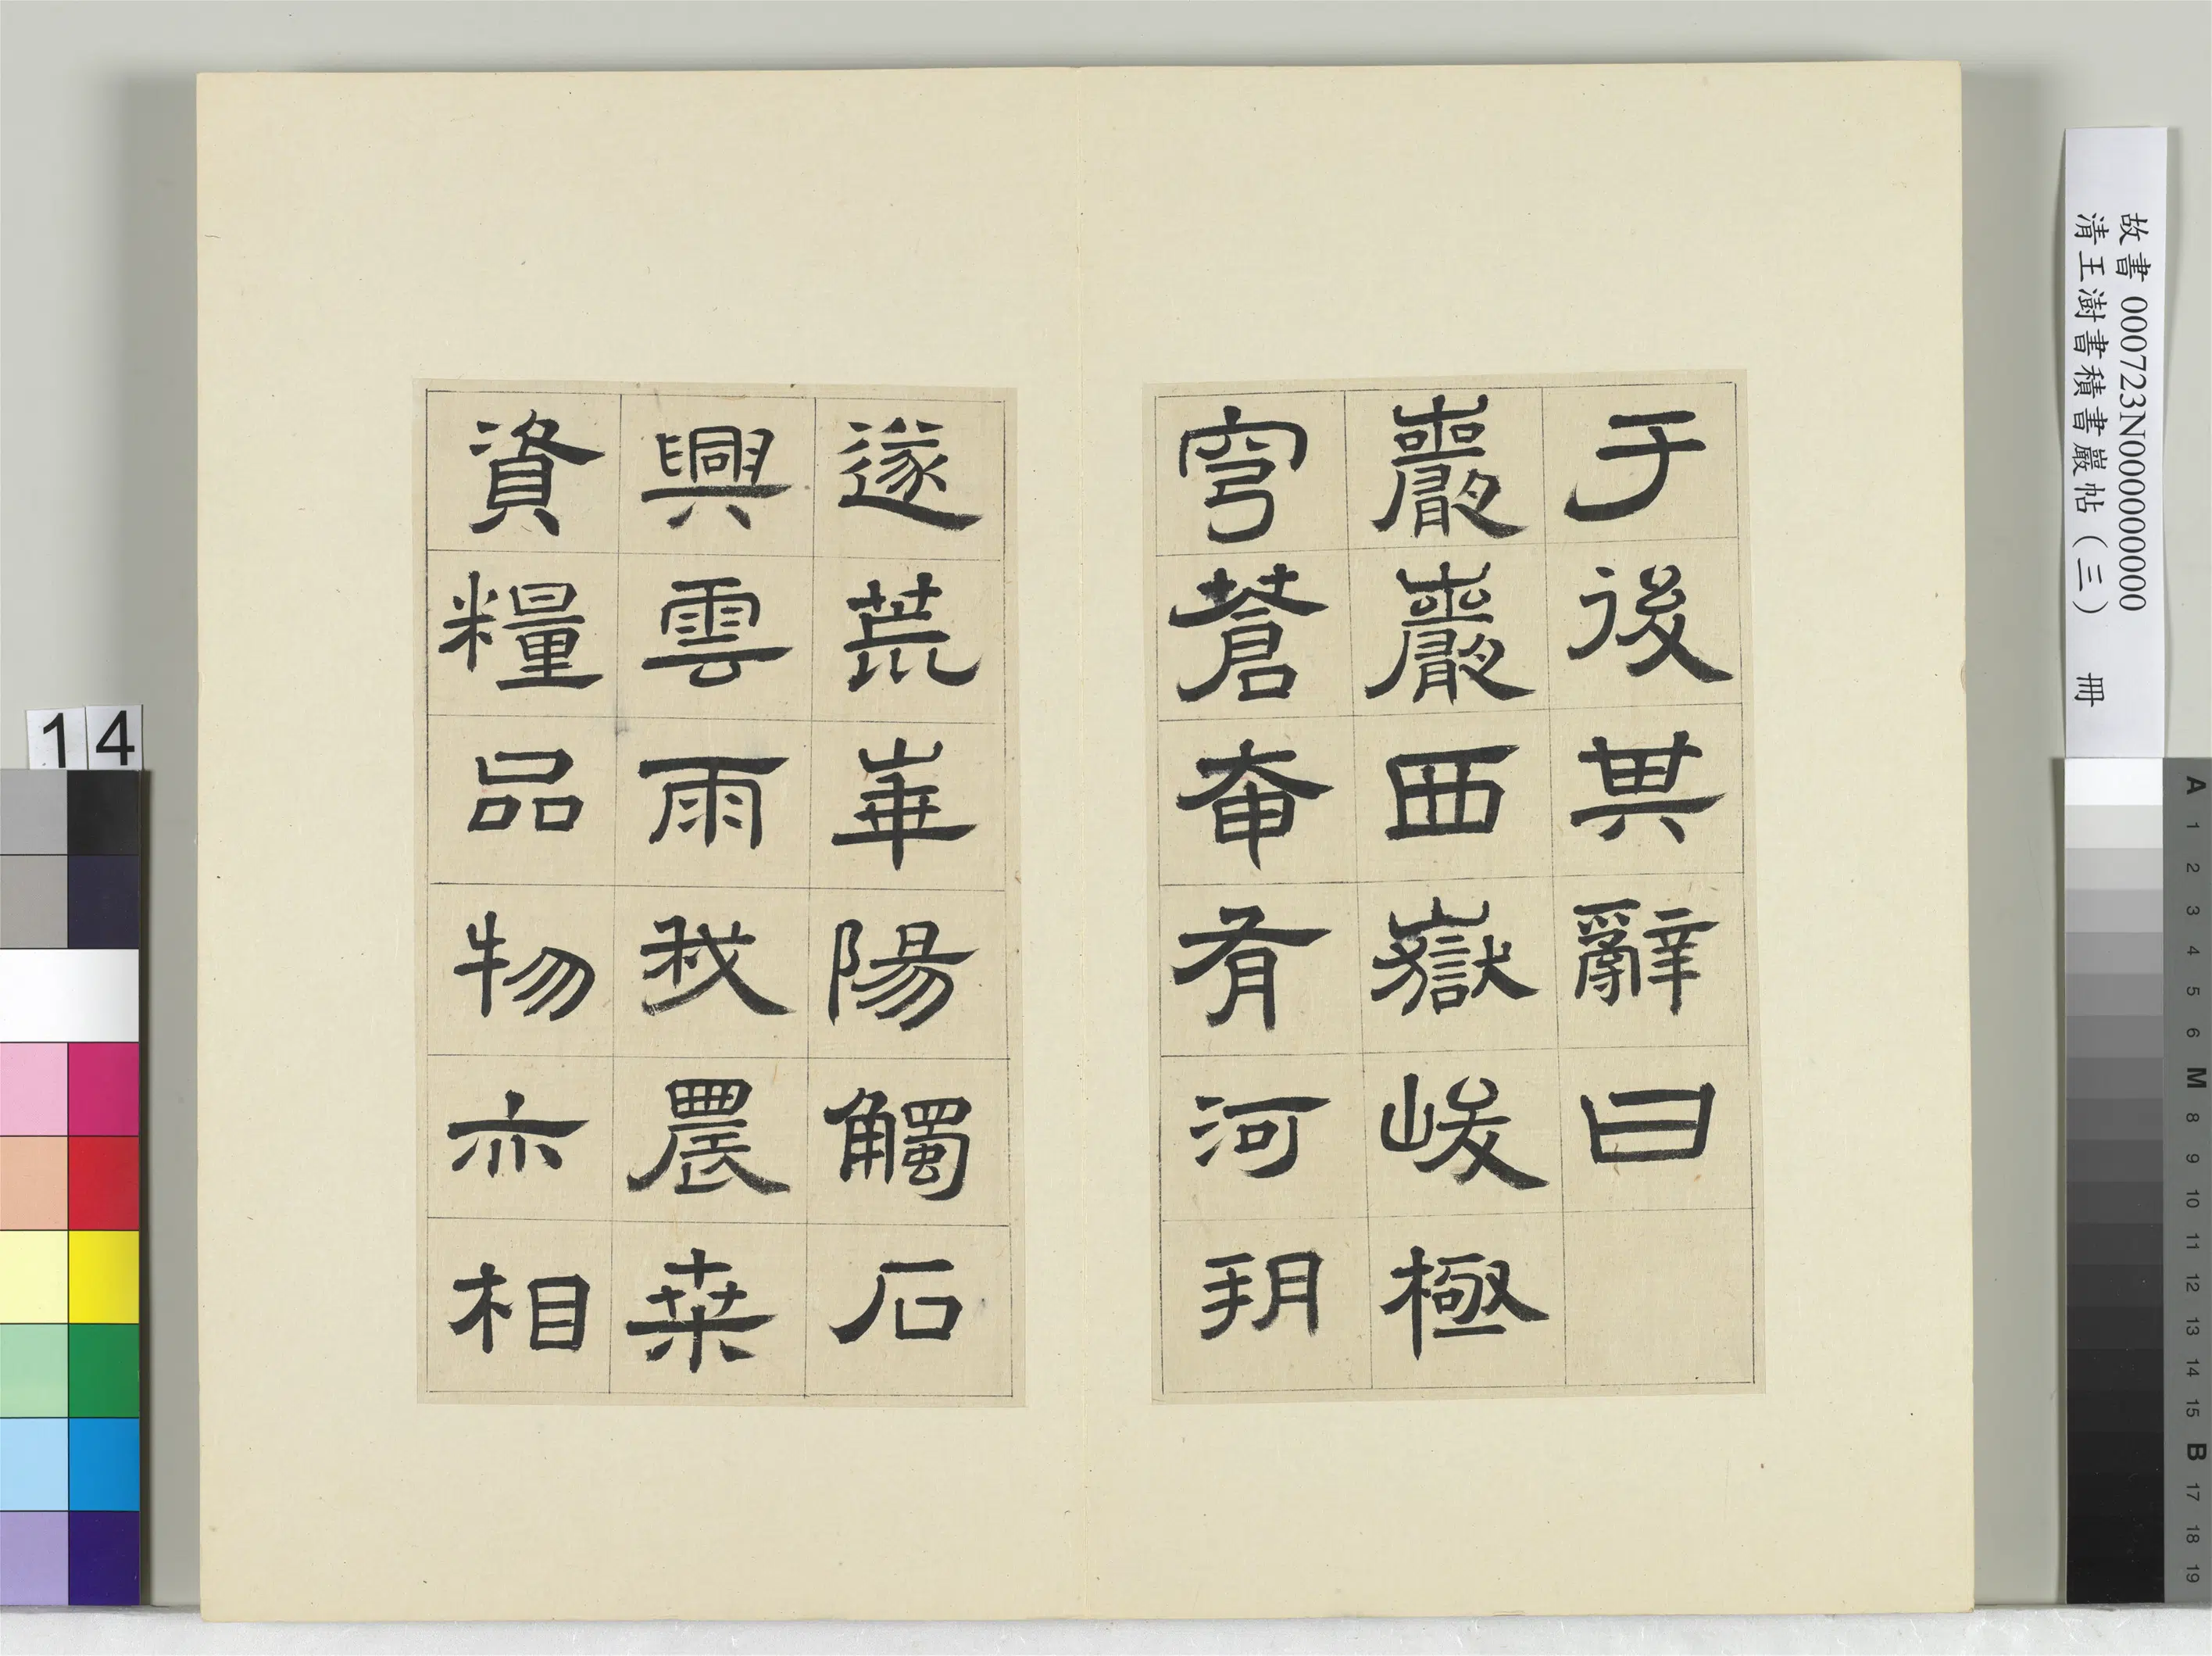 于後其辭曰
巖巖西嶽峻極
穹蒼奄有河朔
遂荒華陽觸石
興雲雨我農桒
資糧品物亦相
故書 000723N000000000
清王澍書積書巖帖（三） 冊
14
A 1 2 3 4 5 6 M 8 9 10 11 12 13 14 15 B 17 18 19